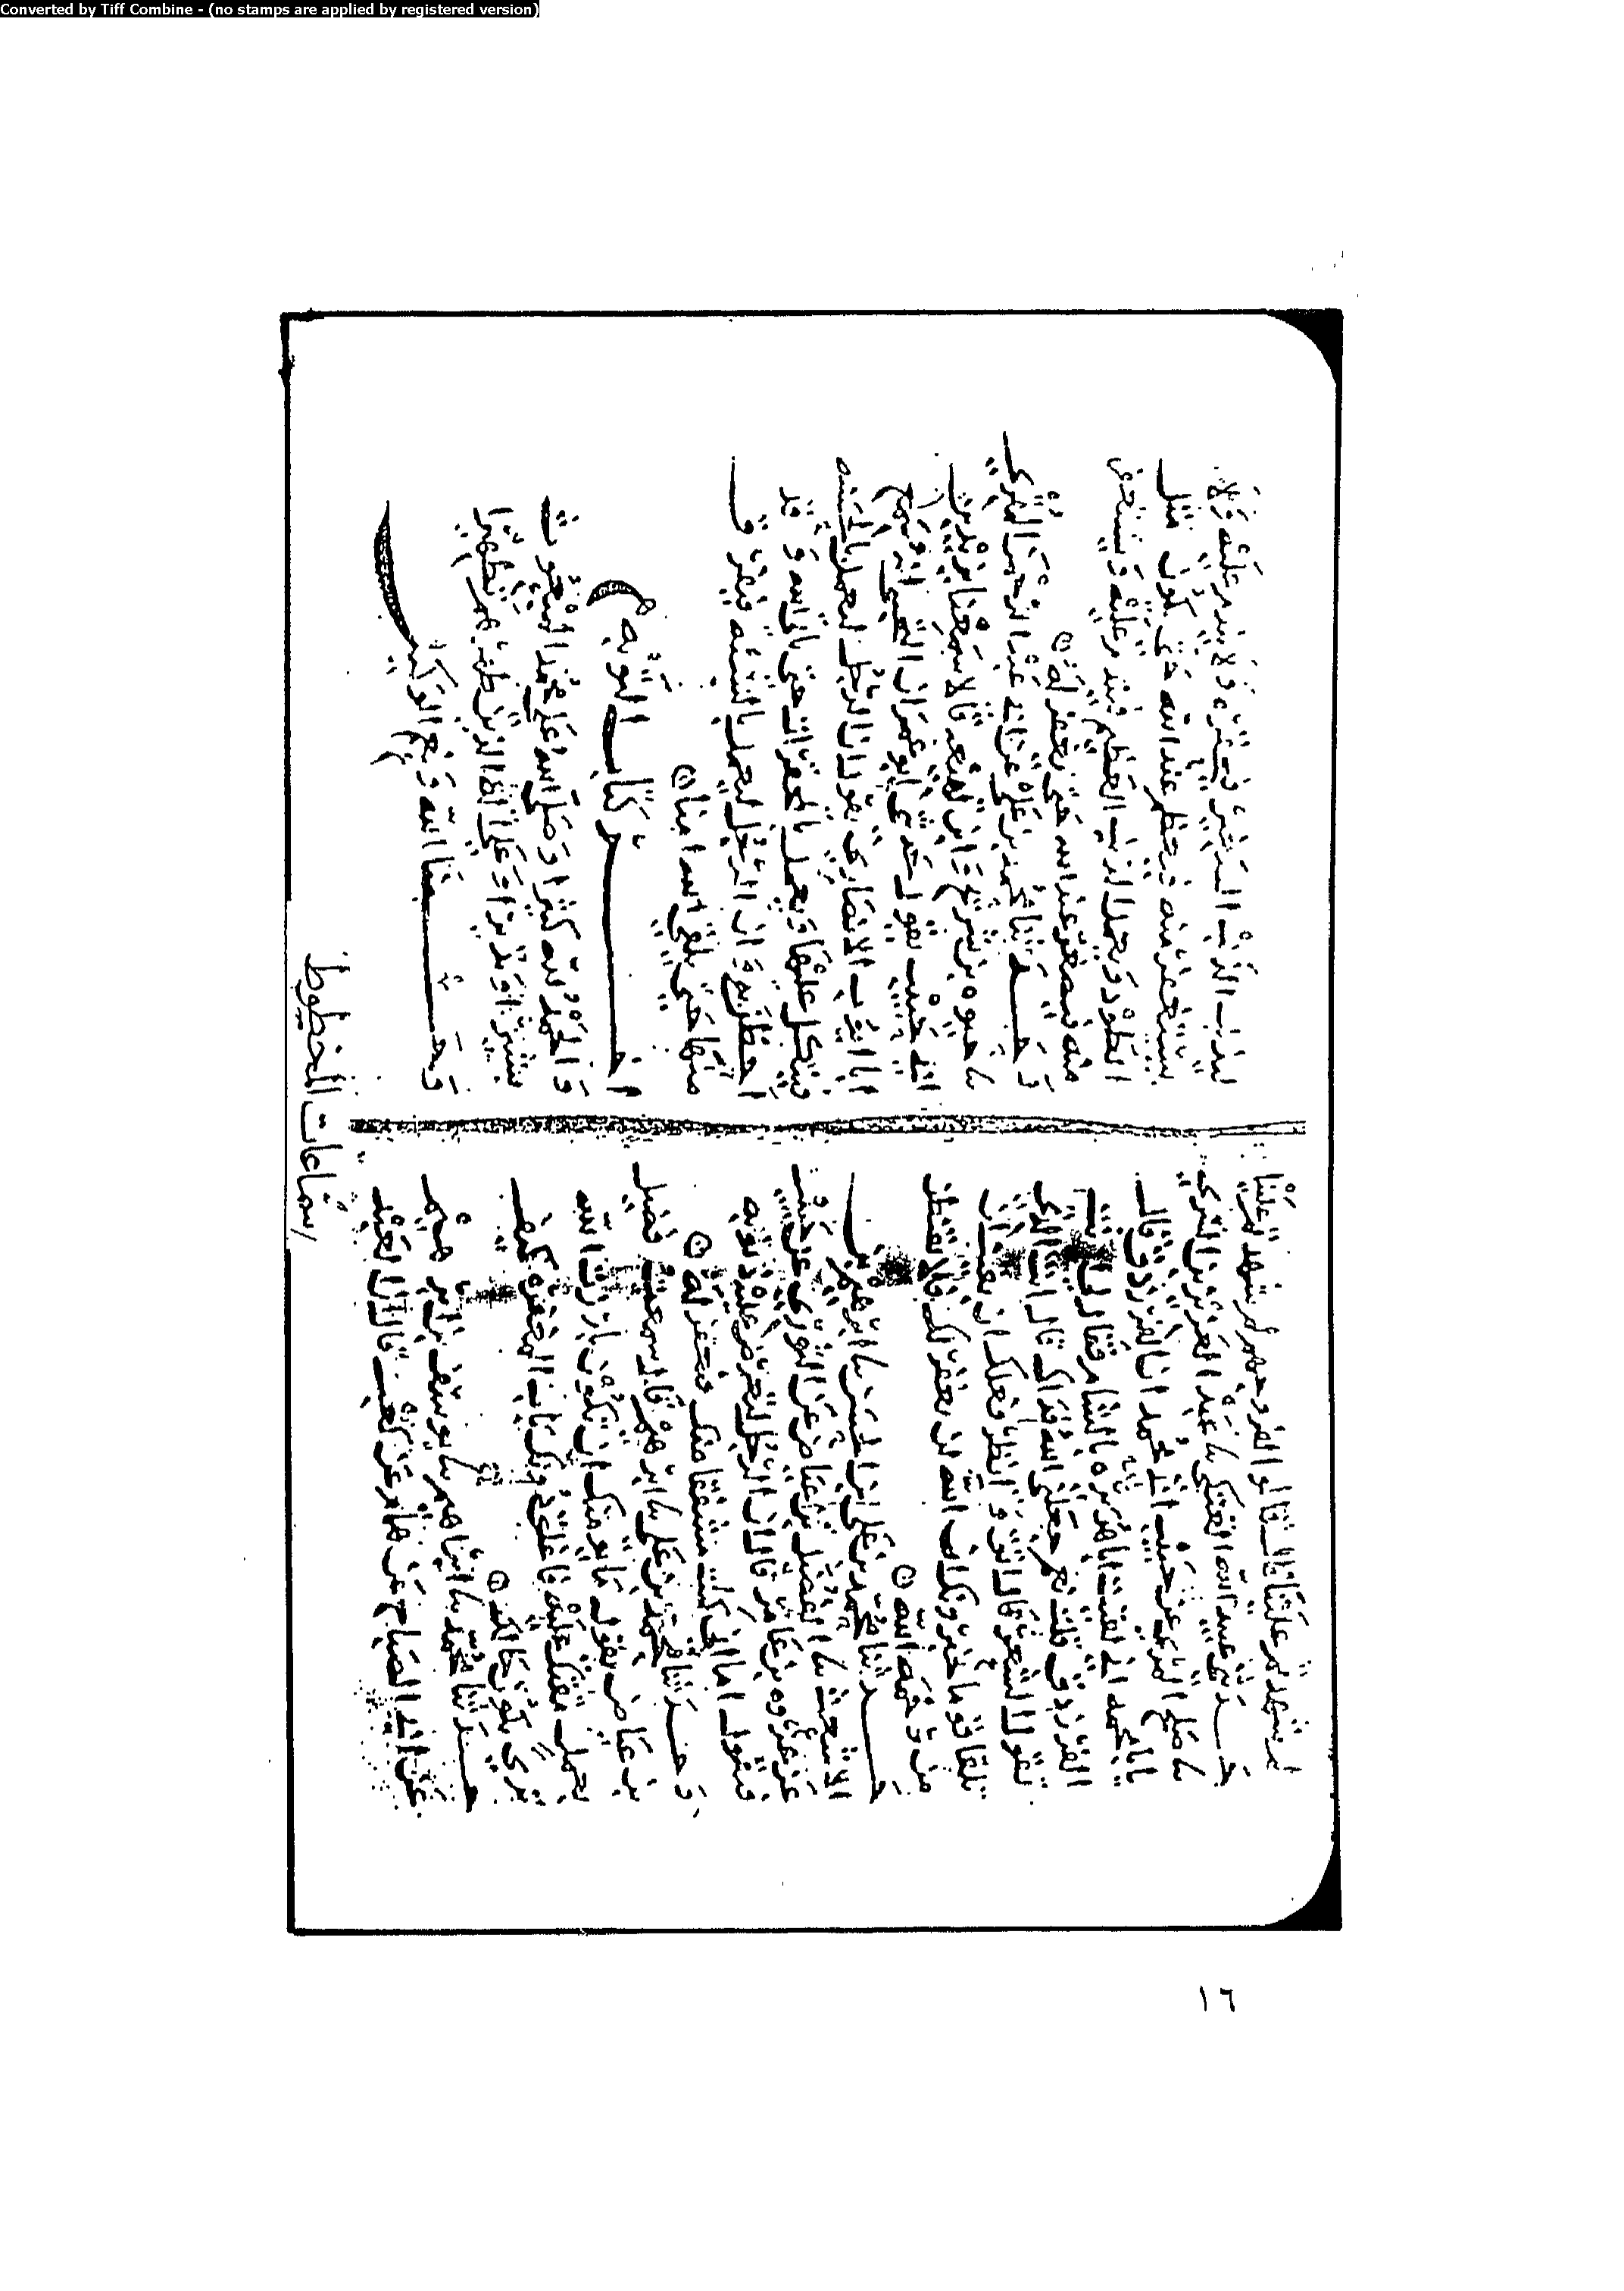 Converted by Tiff Combine - (no stamps are applied by registered version)
لم شهدتم علينا قال فقالوا لفروجهم لم شهدتم علينا
حدثنا عبيد الله العتكي نا عبد العزيز بن السري
نا صالح المري عن حبيب ابي محمد انا الفرزدق قال
يابا محمد اني لقيت ابا هريره بالشام فقال لي انت
الفرزدق قلت نعم جعلني الله فداك قال انت الذي
تقول الشعر قال اتق وانظر فلعلك ان بقيت ان
تلقا قوما يخبرونك ان الله لن يغفر لك فلا تقنطن
من رحمة الله
حدثنا محمد بن علي بن الحسن نا ابرهيم بن
الاشعث نا الفضيل بن عياض عن الثوري عن حبيب
عن عروه بن عامر قال ان الرجل لتعرض عليه ذنوبه
فيقول اما اني كنت مشفقا منك فيغفر له
وحدثنا محمد بن علي نا ابرهيم قال سمعت فضيل
بن عياض يقول ما يؤمنك ان تكون بارزت الله
بعمل مقتك عليه فاغلق دونك باب المغفره كيف
ترى يكون حالك
حدثنا محمد نا ابراهيم نا يوسف بن ابراهيم
عن ابي الصباح عن همام عن كعب قال ان العبد
ليذنب الذنب الصغير فيحقره ولا يندم عليه ولا
يستغفر منه فيعظم عند الله حتى يكون مثل
الطود ويعمل الذنب العظيم فيندم عليه ويستغفر
منه فيصغر عند الله حتى يغفر له
وحدثنا محمد بن علي عن ابي عبد الرحمن المقرئ
نا حيوه بن شريح وابن لهيعه قالا سمعنا يزيد بن
ابي حبيب يقول حدثني ابو عمران التجيبي انه سمع
ابا ايوب الانصاري يقول ان الرجل ليعمل بالحسنه
فيتكل عليها ويعمل بالمحقرات حتى ياتي الله وقد
احظرته وان الرجل ليعمل بالسيئه فيفرق
منها حتى يلقى الله امنا
اخر كتاب التوبه
والحمد لله كثيرا وصلى الله على محمد المبعوث
بشيرا ونذيرا وعلى اله الذين طهرهم تطهيرا
وحسبنا الله ونعم الوكيل
سماعات المخطوط
١٦